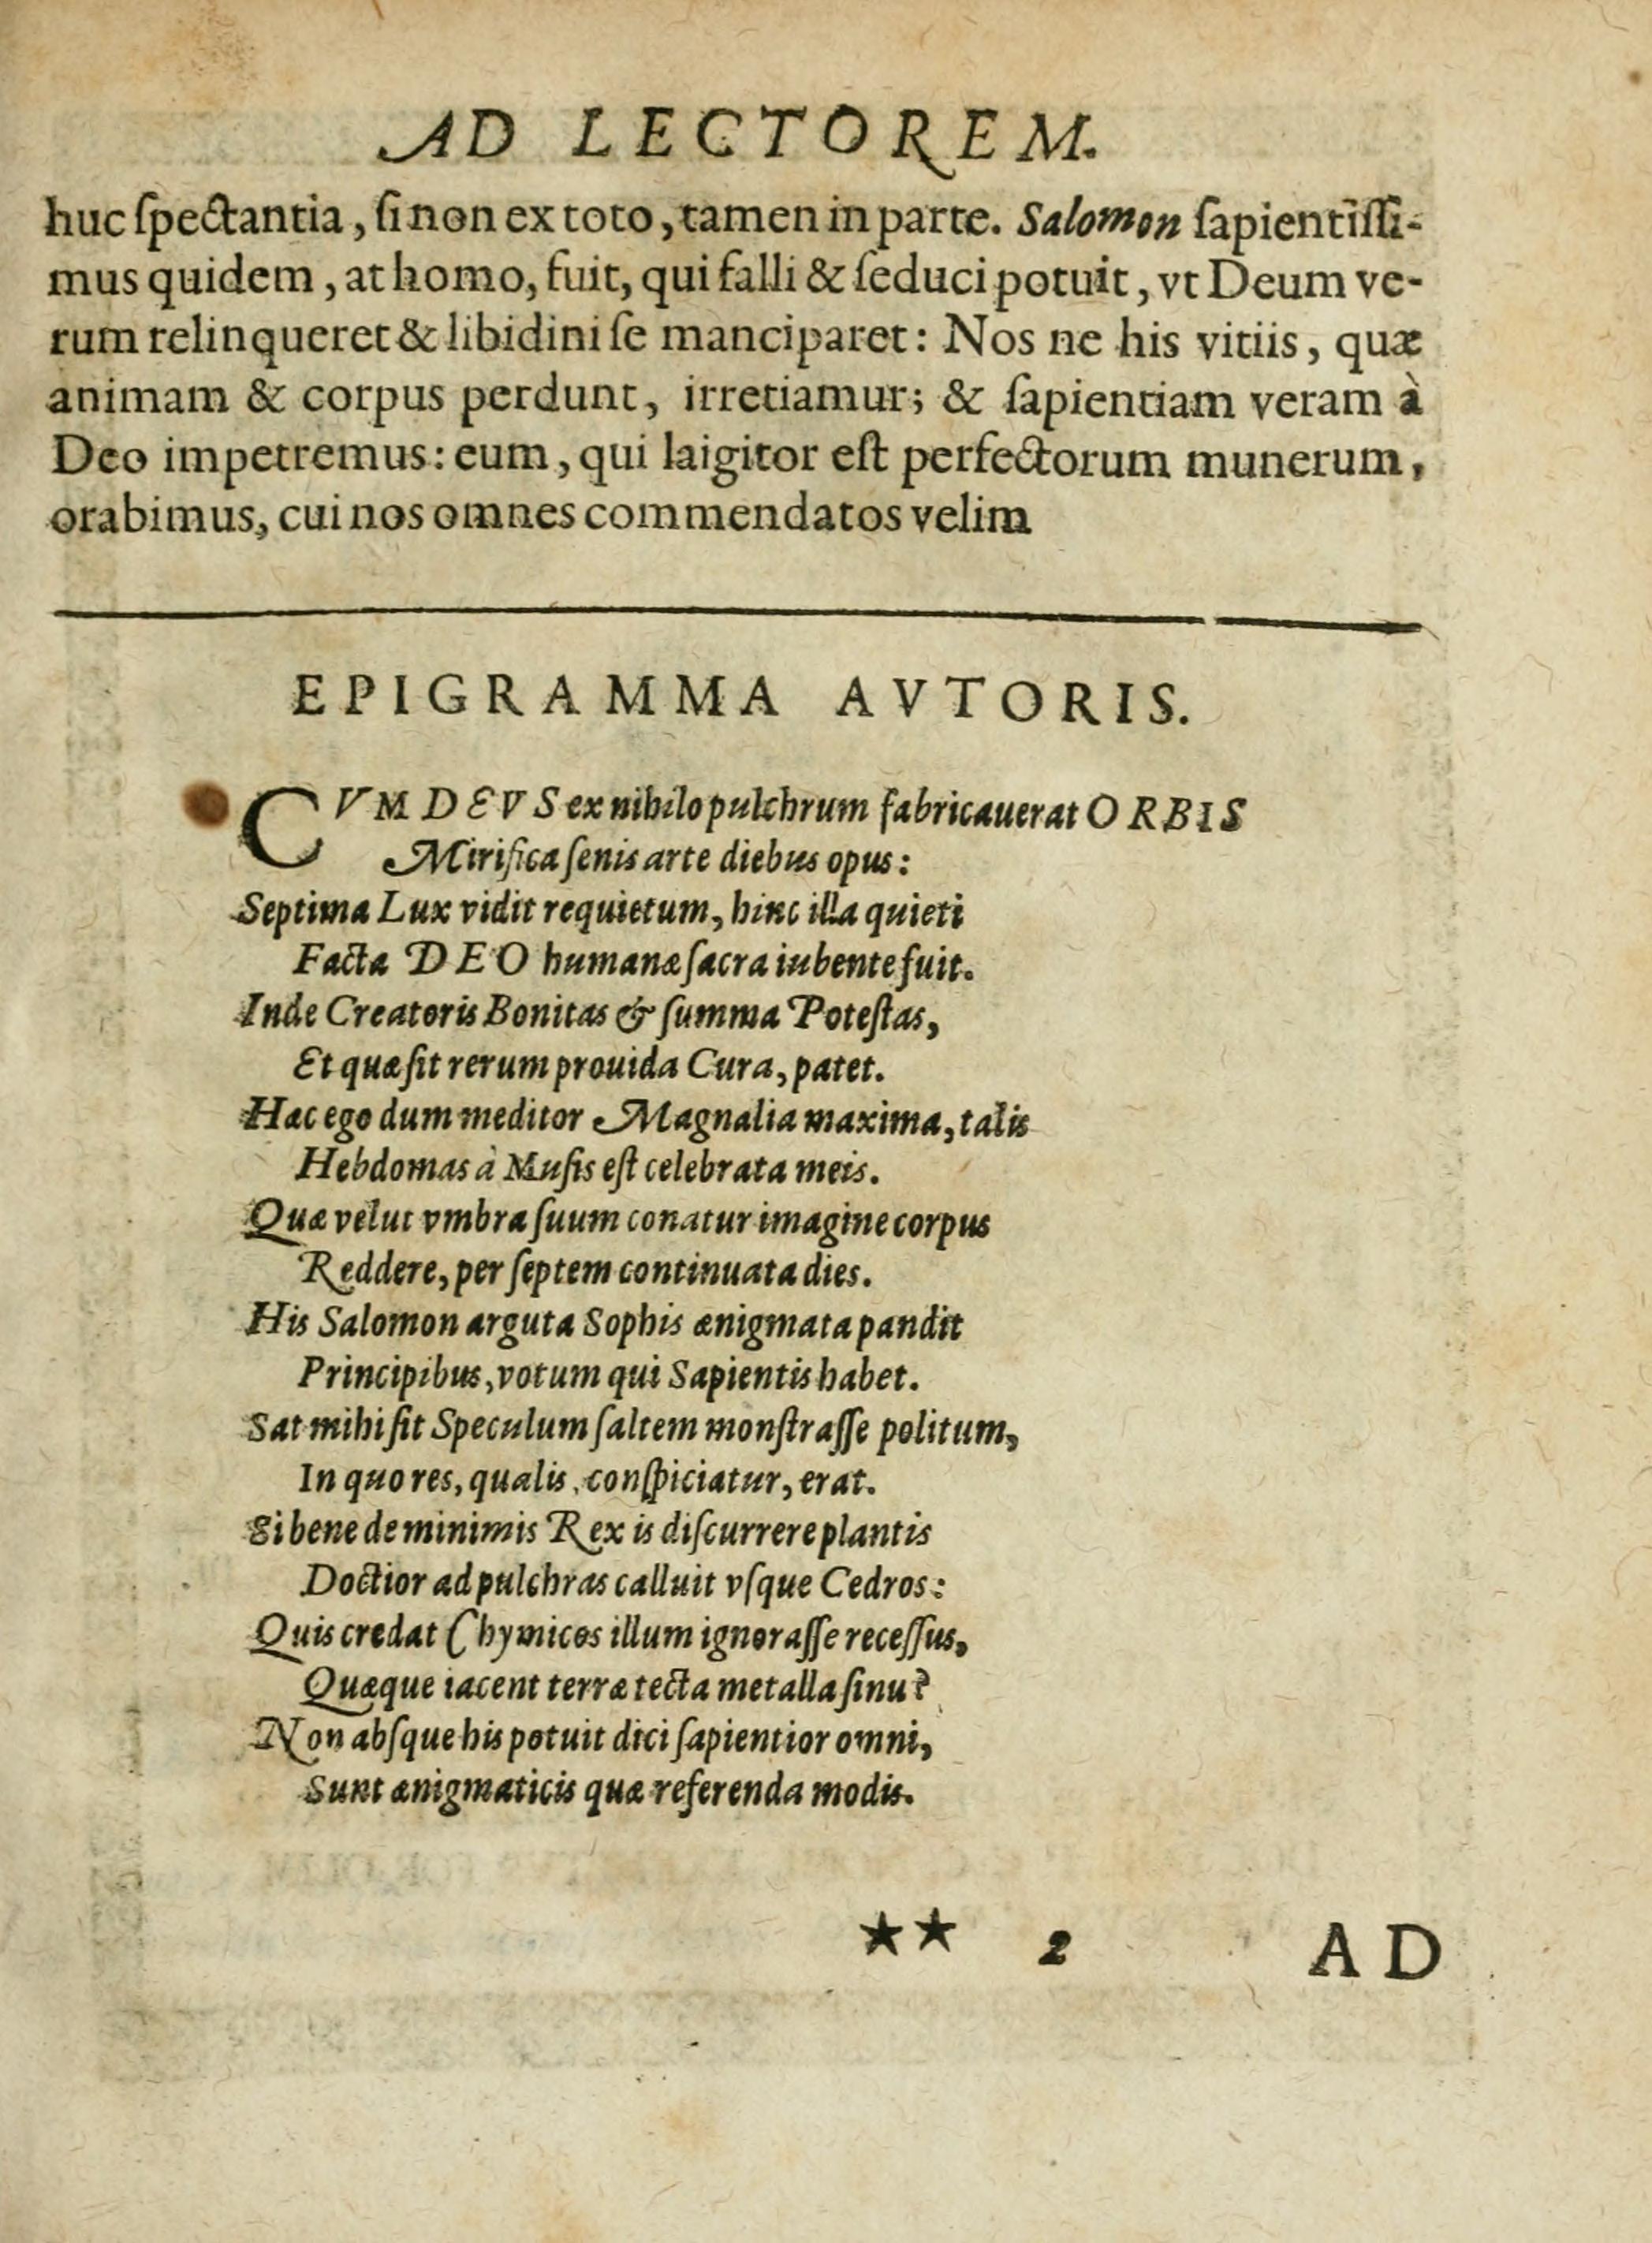 AD LECTOREM.
huc ſpectantia, ſi non ex toto, tamen in parte. Salomon ſapientiſſi-
mus quidem, at homo, fuit, qui falli & ſeduci potuit, vt Deum ve-
rum relinqueret & libidini ſe manciparet: Nos ne his vitiis, quæ
animam & corpus perdunt, irretiamur; & ſapientiam veram à
Deo impetremus: eum, qui laigitor eſt perfectorum munerum,
orabimus, cui nos omnes commendatos velim
EPIGRAMMA AVTORIS.
CVM DEVS ex nihilo pulchrum fabricauerat ORBIS
Mirifica ſenis arte diebus opus:
Septima Lux vidit requietum, hinc illa quieti
Facta DEO humanæ ſacra iubente fuit.
Inde Creatoris Bonitas & ſumma Poteſtas,
Et quæ ſit rerum prouida Cura, patet.
Hæc ego dum meditor Magnalia maxima, talis
Hebdomas à Muſis eſt celebrata meis.
Quæ velut vmbra ſuum conatur imagine corpus
Reddere, per ſeptem continuata dies.
His Salomon arguta Sophis ænigmata pandit
Principibus, votum qui Sapientis habet.
Sat mihi ſit Speculum ſaltem monſtraſſe politum,
In quo res, qualis, conſpiciatur, erat.
Si bene de minimis Rex is diſcurrere plantis
Doctior ad pulchras calluit vſque Cedros:
Quis credat Chymicos illum ignoraſſe receſſus,
Quæque iacent terræ tecta metalla ſinu?
Non abſque his potuit dici ſapientior omni,
Sunt ænigmaticis quæ referenda modis.
★★ 2 AD